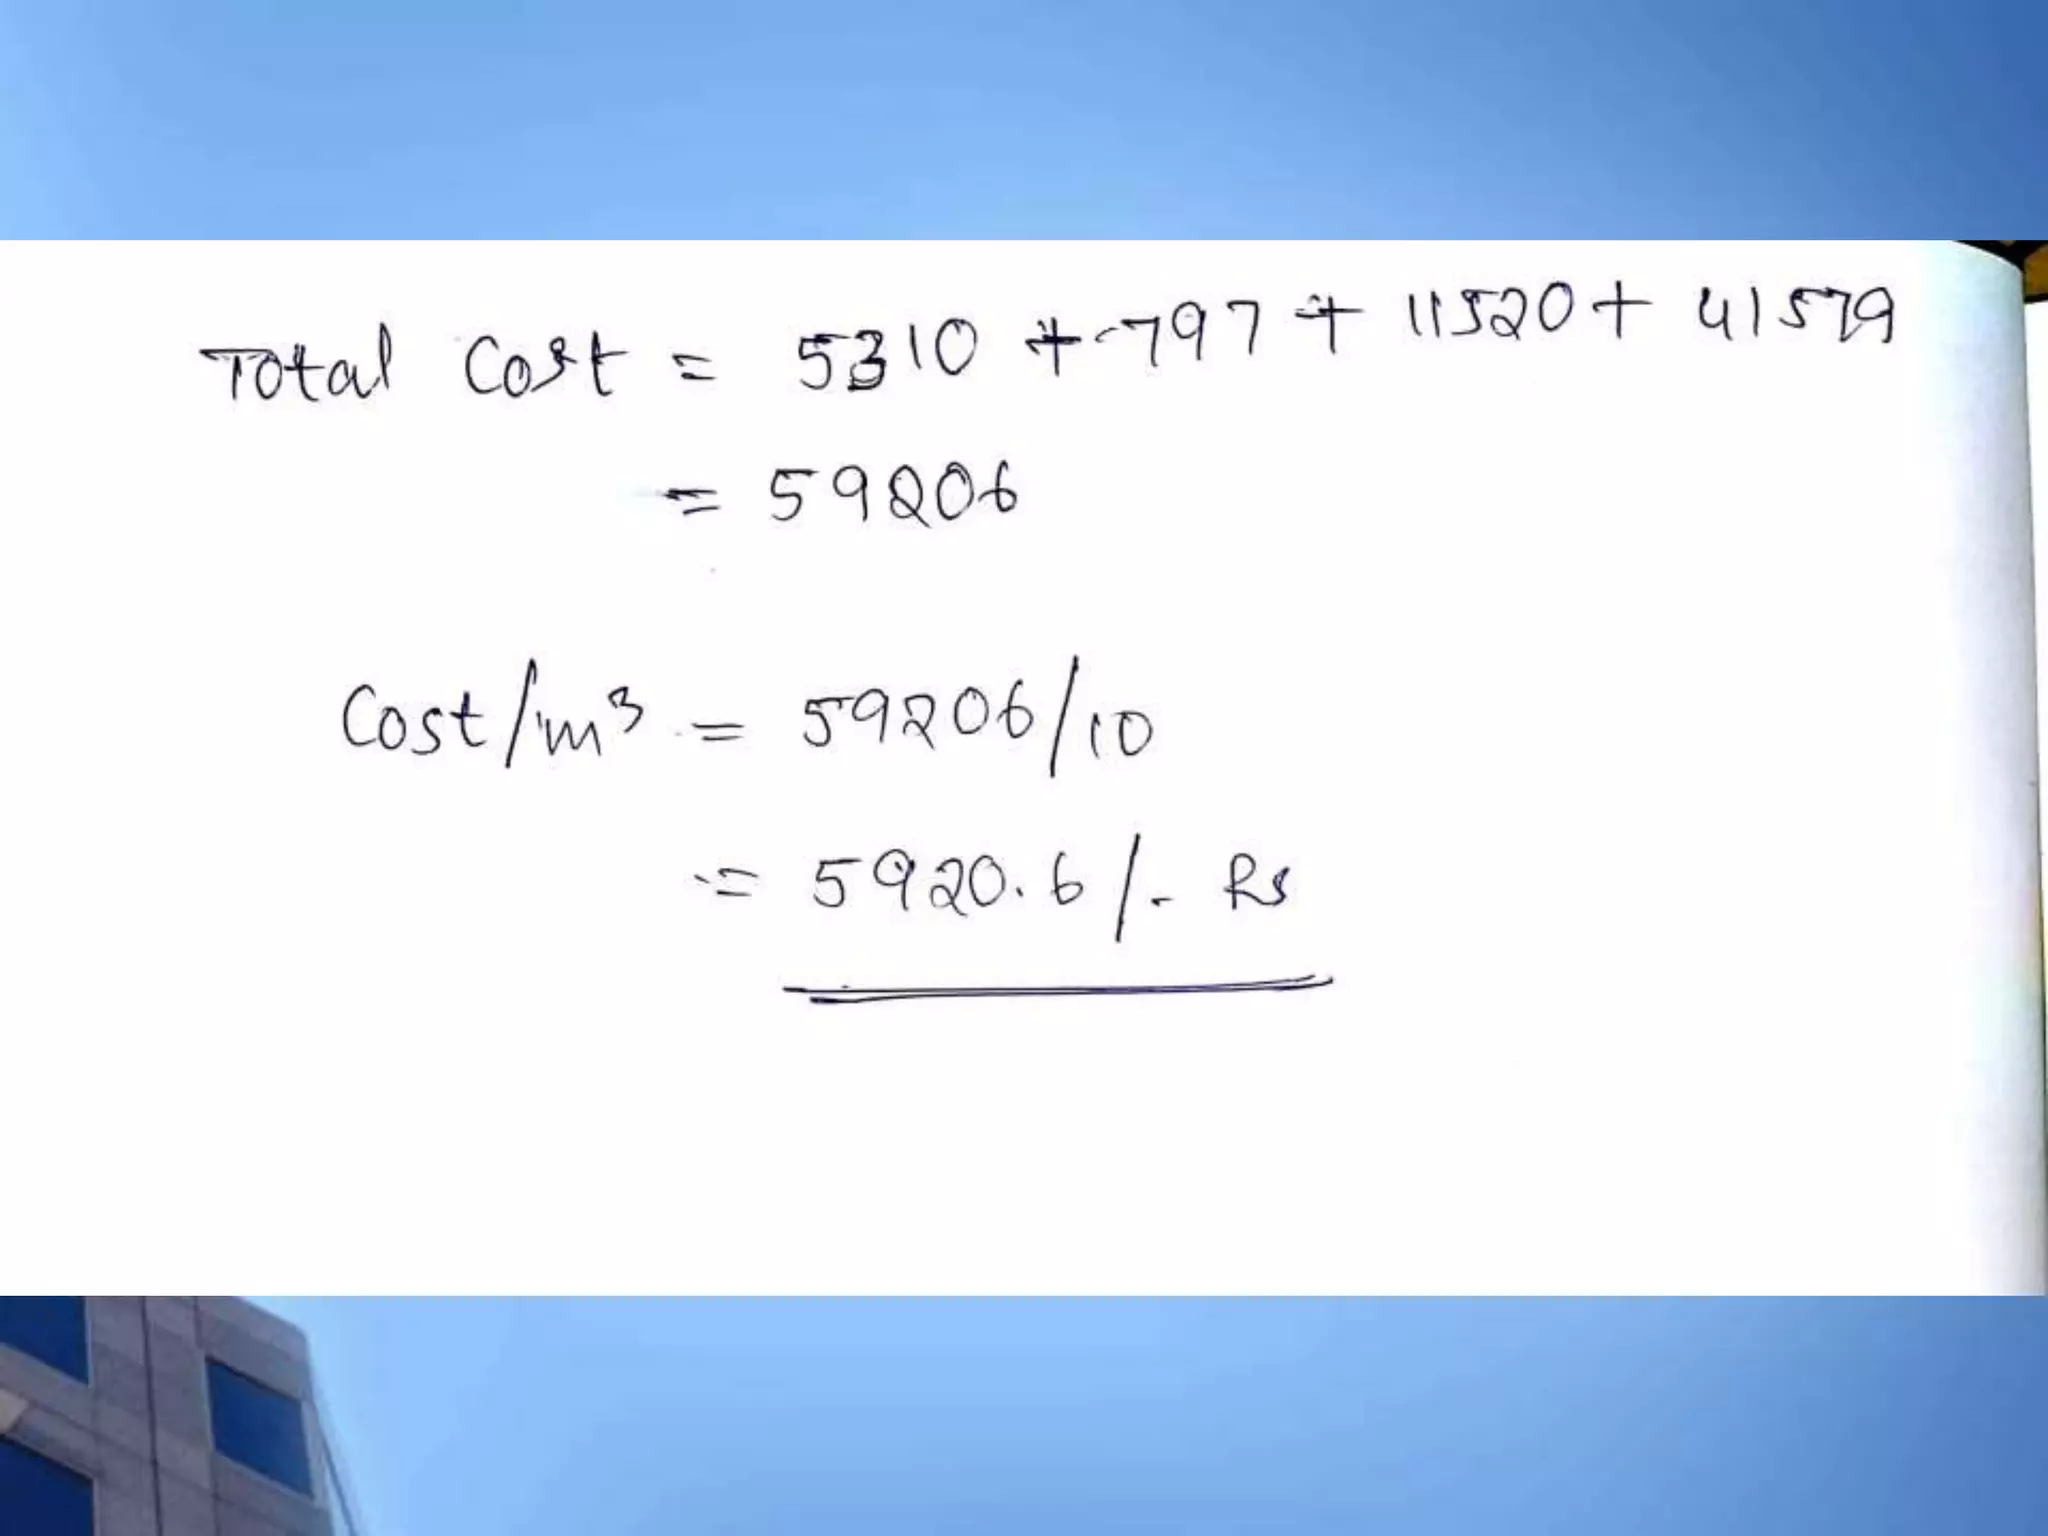 Total Cost = 5310 + 797 + 11520 + 41579
= 59206
Cost/m³ = 59206/10
= 5920.6/- Rs